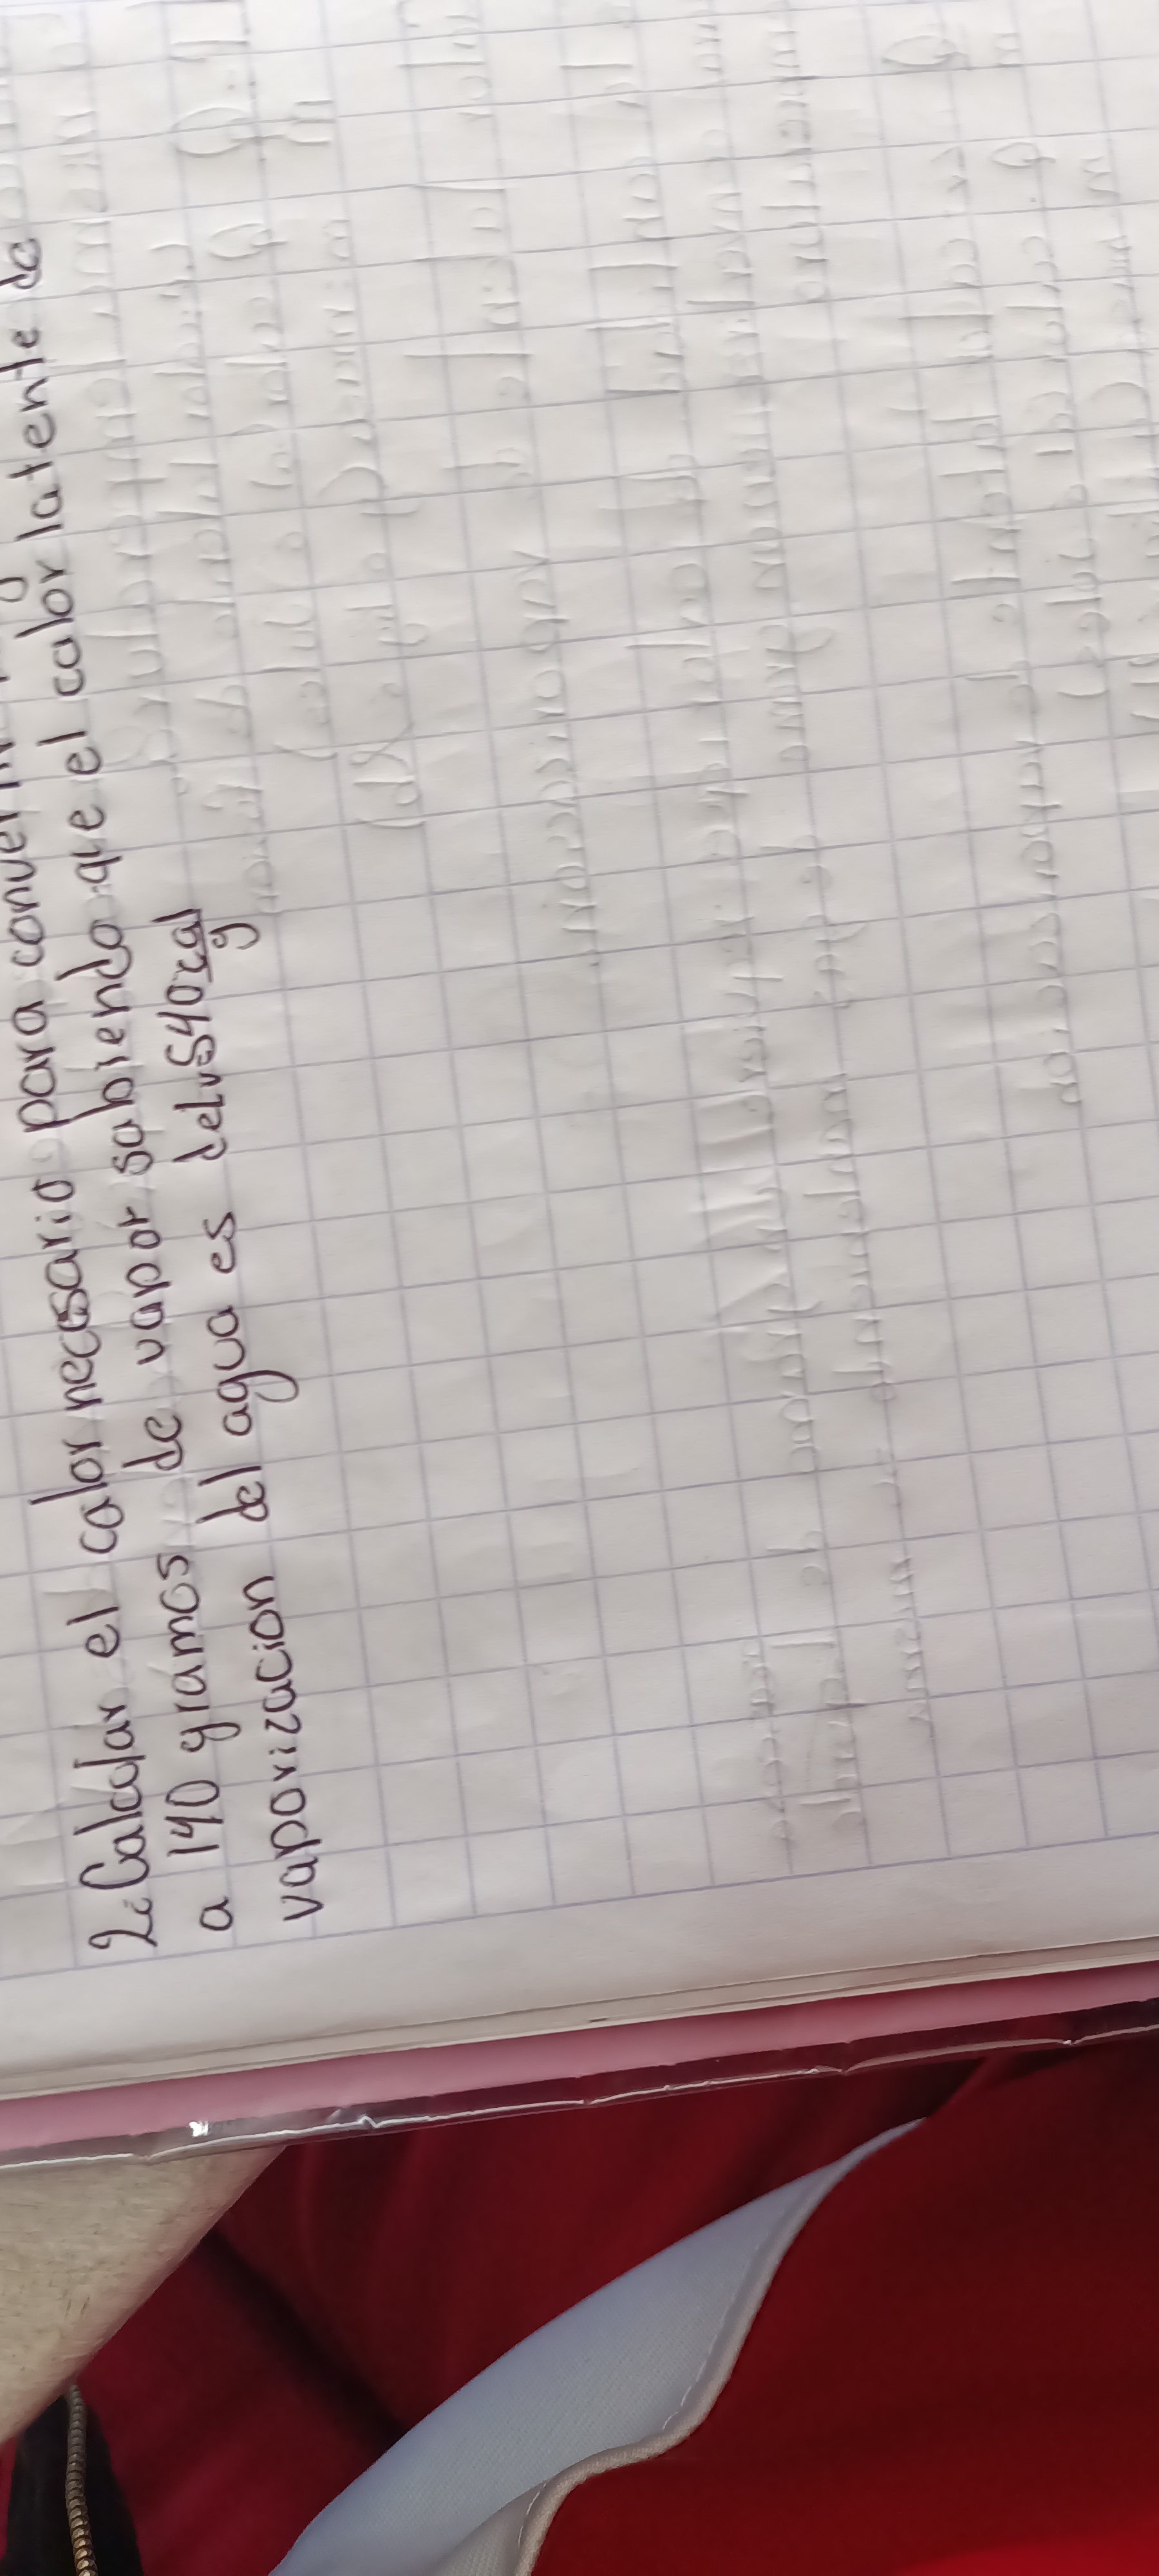 2. Calcular el calor necesario para
a 140 gramos de vapor sabiendo que el calor latente de
vaporizacion del agua es de Lv=540 cal/g